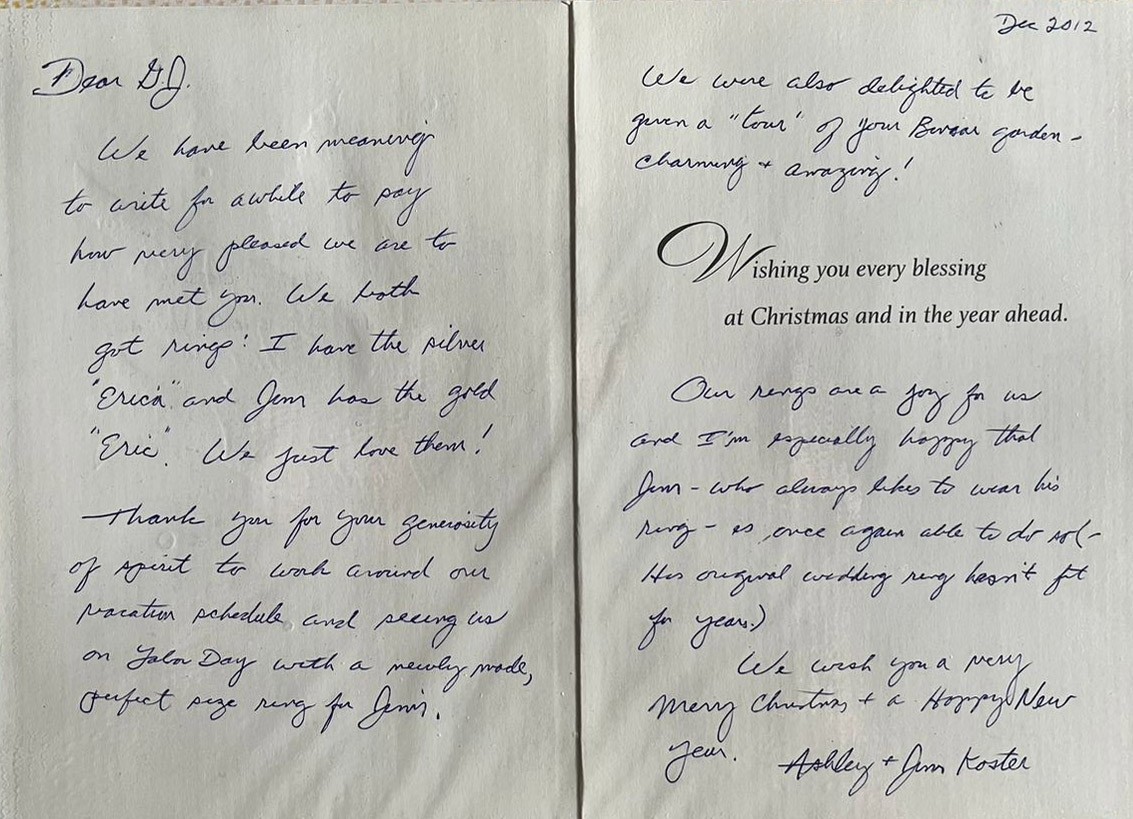 Dear G.J.
We have been meaning
to write for awhile to say
how very pleased we are to
have met you. We both
got rings! I have the silver
"Erica" and Jim has the gold
"Eric". We just love them!
Thank you for your generosity
of spirit to work around our
vacation schedule and seeing us
on Labor Day with a newly made,
perfect size ring for Jim.
Dec 2012
We were also delighted to be
given a "tour" of your garden -
charming + amazing!
Wishing you every blessing
at Christmas and in the year ahead.
Our rings are a joy for us
and I'm especially happy that
Jim - who always likes to wear his
ring - is once again able to do so (-
His original wedding ring hasn't fit
for years.)
We wish you a very
Merry Christmas + a Happy New
Year.
Ashley + Jim Koster